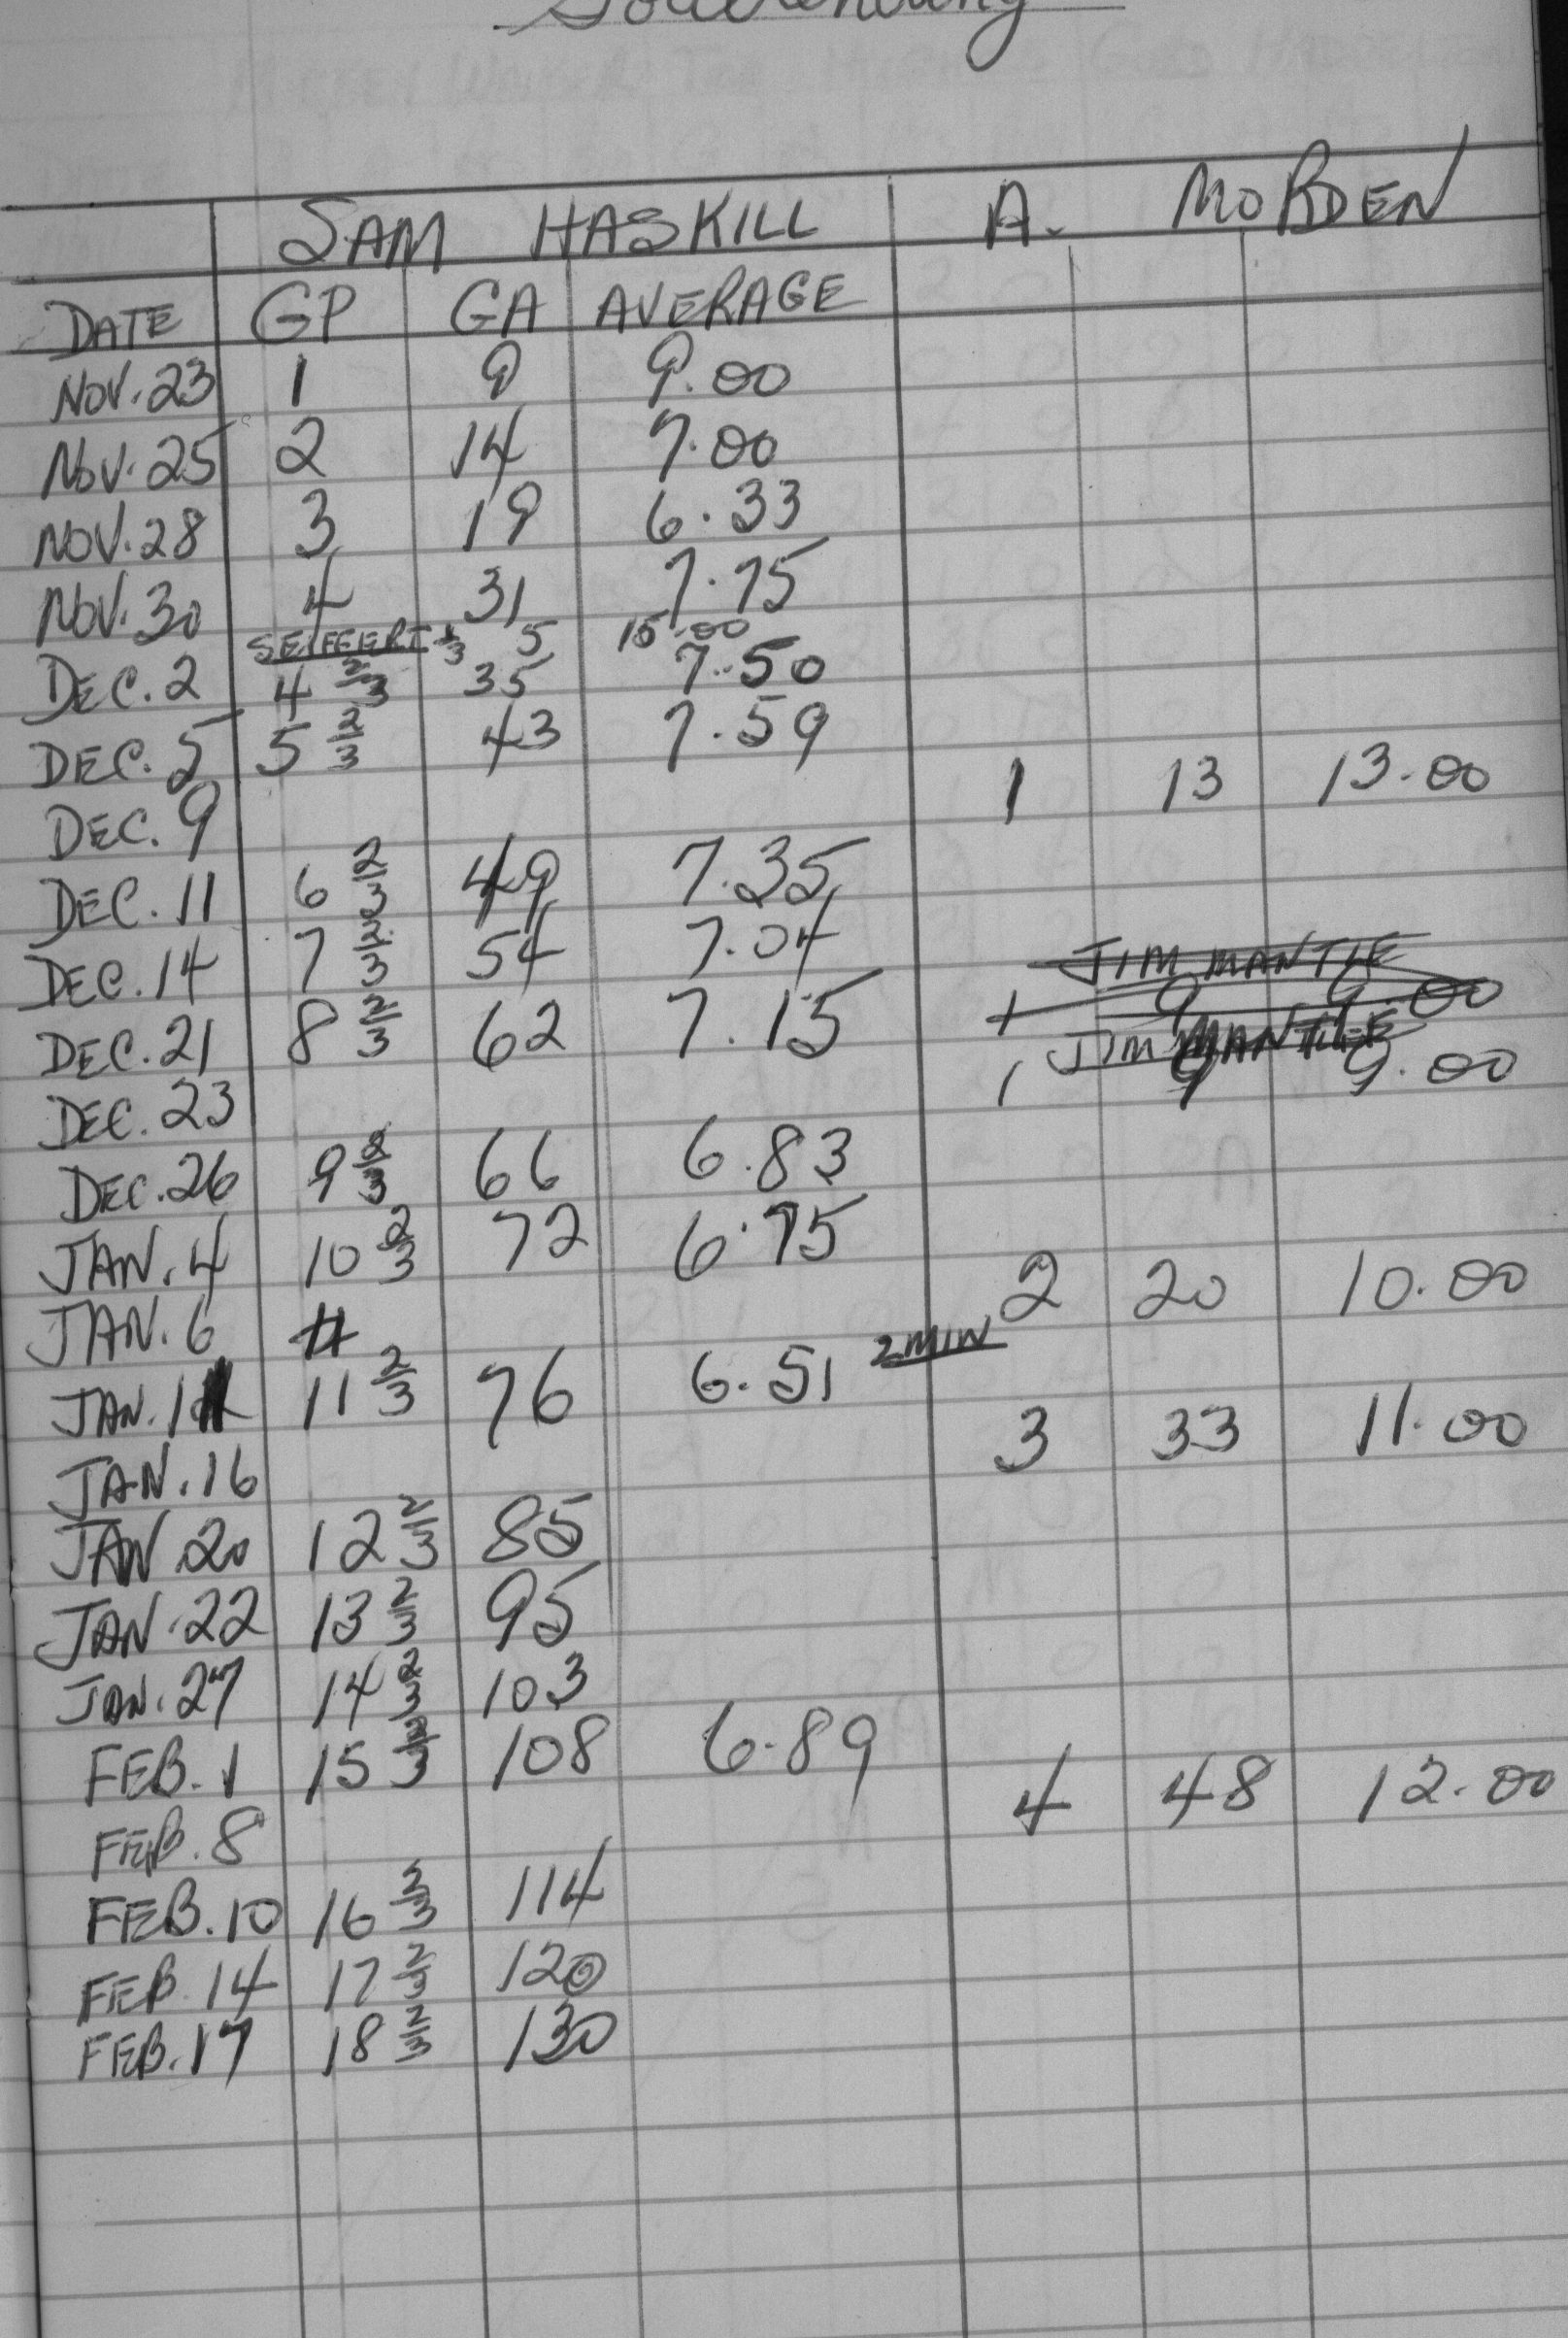 Goaltending
SAM HASKILL A. MORDEN
DATE GP GA AVERAGE
NOV. 23 1 9 9.00
NOV. 25 2 14 7.00
NOV. 28 3 19 6.33
NOV. 30 4 31 7.75
SEIFFERT 1/3 5 15.00
DEC. 2 4 2/3 35 7.50
DEC. 5 5 2/3 43 7.59
DEC. 9 1 13 13.00
DEC. 11 6 2/3 49 7.35
DEC. 14 7 2/3 54 7.04
JIM MANTLE
DEC. 21 8 2/3 62 7.15 1 9 9.00
JIM MANTLE
DEC. 23 1 9 9.00
DEC. 26 9 2/3 66 6.83
JAN. 4 10 2/3 72 6.75
JAN. 6 11 2 20 10.00
JAN. 11 2/3 76 6.51 2 MIN
JAN. 16 3 33 11.00
JAN 20 12 2/3 85
JAN. 22 13 2/3 95
JAN. 27 14 2/3 103
FEB. 1 15 2/3 108 6.89
FEB. 8 4 48 12.00
FEB. 10 16 2/3 114
FEB. 14 17 2/3 120
FEB. 17 18 2/3 130